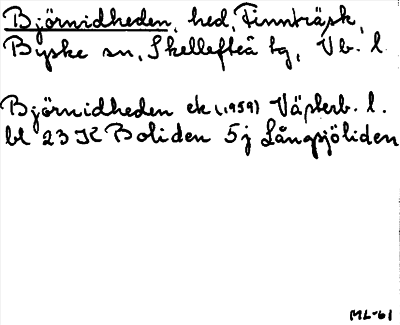 Björnidheden, hed, Finnträsk,
Byske sn, Skellefteå tg, Vb. l.
Björnidheden ek (1959) Västerb. l.
bl 23 K Boliden 5j Långsjöliden
ML-61